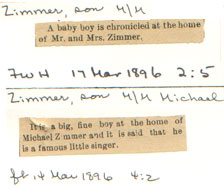 Zimmer, son M/M
A baby boy is chronicled at the home
of Mr. and Mrs. Zimmer.
FWH 17 Mar 1896 2:5
Zimmer, son M/M Michael
It is a big, fine boy at the home of
Michael Zimmer and it is said that he
is a famous little singer.
14 Mar 1896 4:2